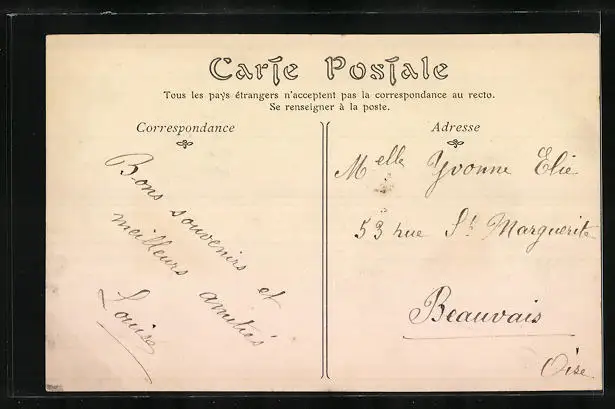 Carte Postale
Tous les pays étrangers n'acceptent pas la correspondance au recto.
Se renseigner à la poste.
Correspondance
Bons souvenirs et
meilleurs amitiés
Louise
Adresse
Melle Yvonne Elie
53 rue St Marguerite
Beauvais
Oise